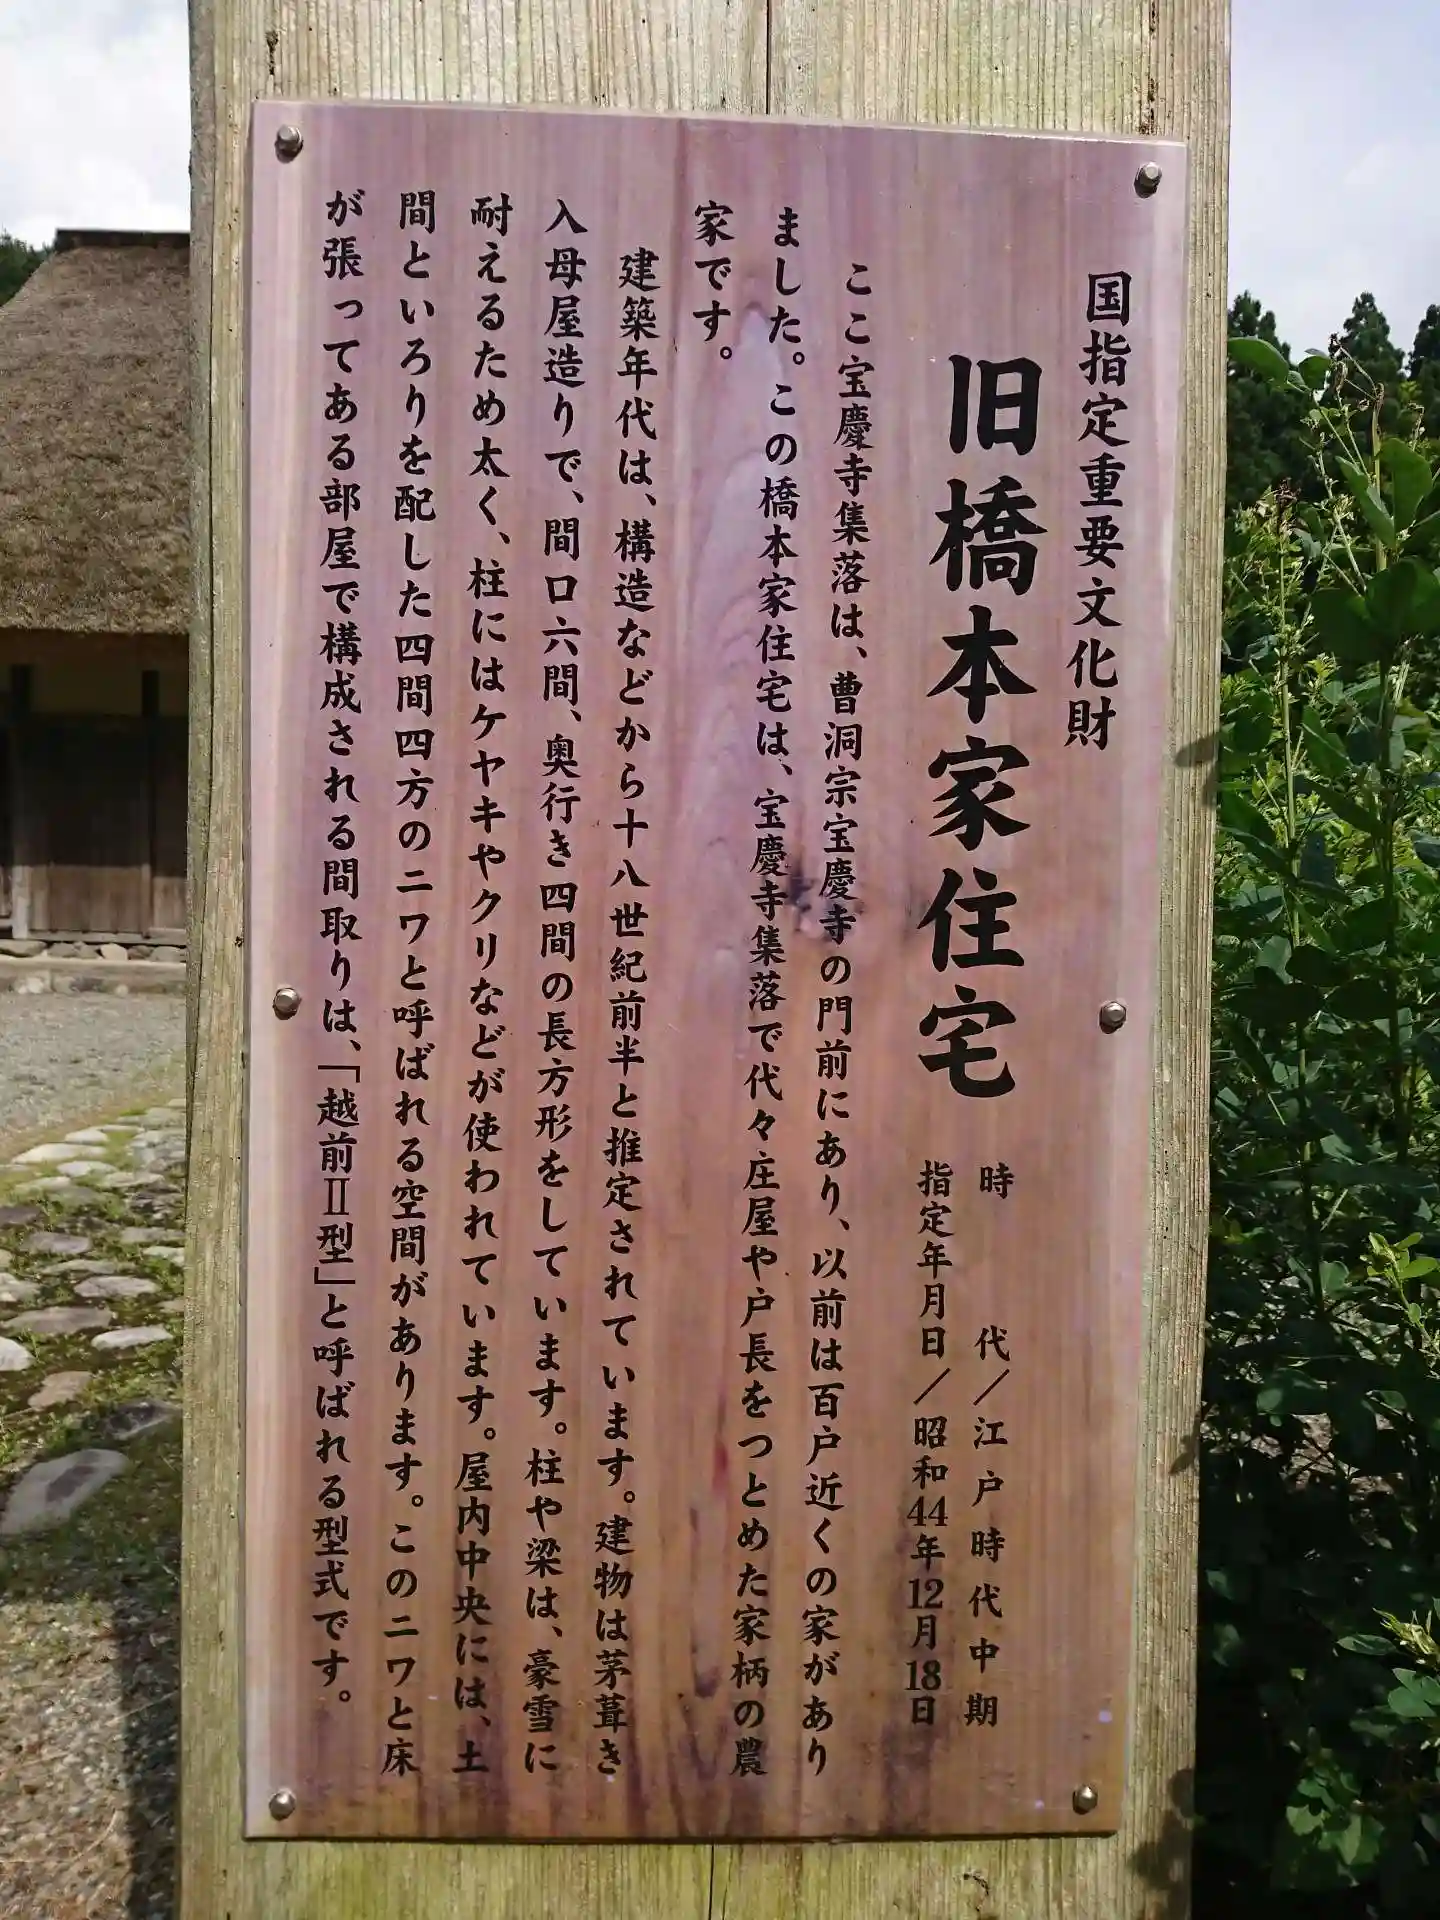 国指定重要文化財
旧橋本家住宅
時代／江戸時代中期
指定年月日／昭和44年12月18日
ここ宝慶寺集落は、曹洞宗宝慶寺の門前にあり、以前は百戸近くの家があり
ました。この橋本家住宅は、宝慶寺集落で代々庄屋や戸長をつとめた家柄の農
家です。
建築年代は、構造などから十八世紀前半と推定されています。建物は茅葺き
入母屋造りで、間口六間、奥行き四間の長方形をしています。柱や梁は、豪雪に
耐えるため太く、柱にはケヤキやクリなどが使われています。屋内中央には、土
間といろりを配した四間四方のニワと呼ばれる空間があります。このニワと床
が張ってある部屋で構成される間取りは、「越前Ⅱ型」と呼ばれる型式です。